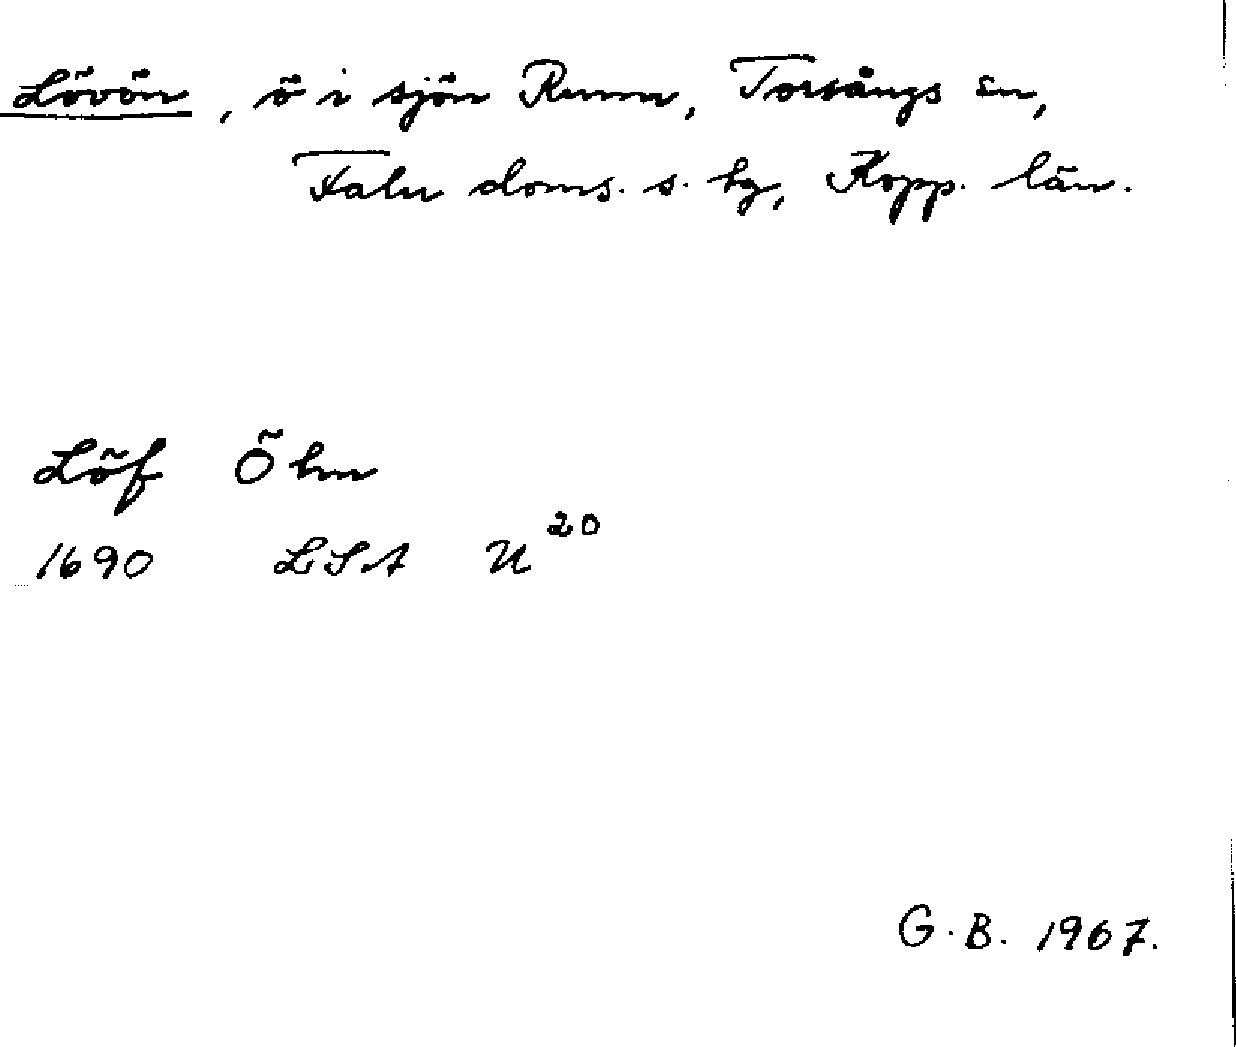 Lövön, ö i sjön Runn, Torsångs sn,
Falu doms. s. bg, Kopp. län.
Löf Öhn
1690 LSA U20
G. B. 1967.